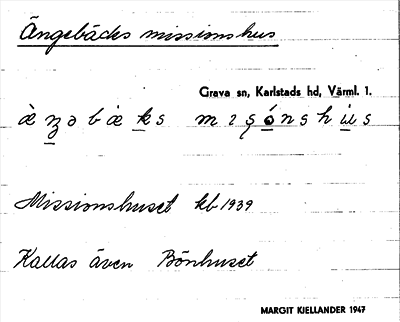 Ängebäcks missionshus
Grava sn, Karlstads hd, Värml. 1.
Missionshuset kb 1939
Kallas även Bönhuset
MARGIT KJELLANDER 1947